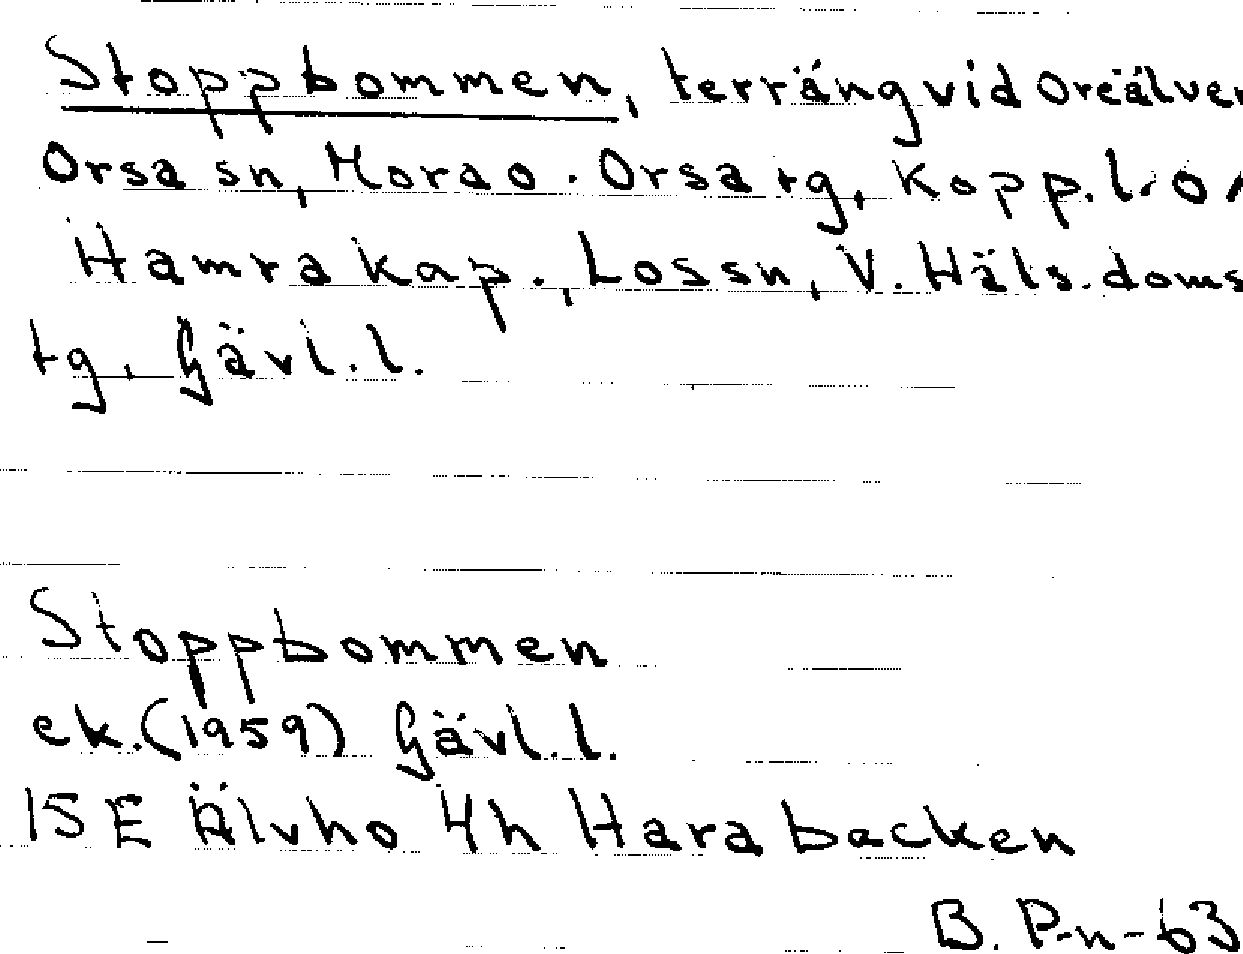 Stoppbommen, terräng vid Oreälven
Orsa sn, Mora o. Orsa tg, Kopp. l. o
Hamra kap., Los sn, V. Häls. doms
tg, Gävl. l.
Stoppbommen
ek. (1959) Gävl. l.
15 E Älvho 4h Harabacken
B. P-n-63